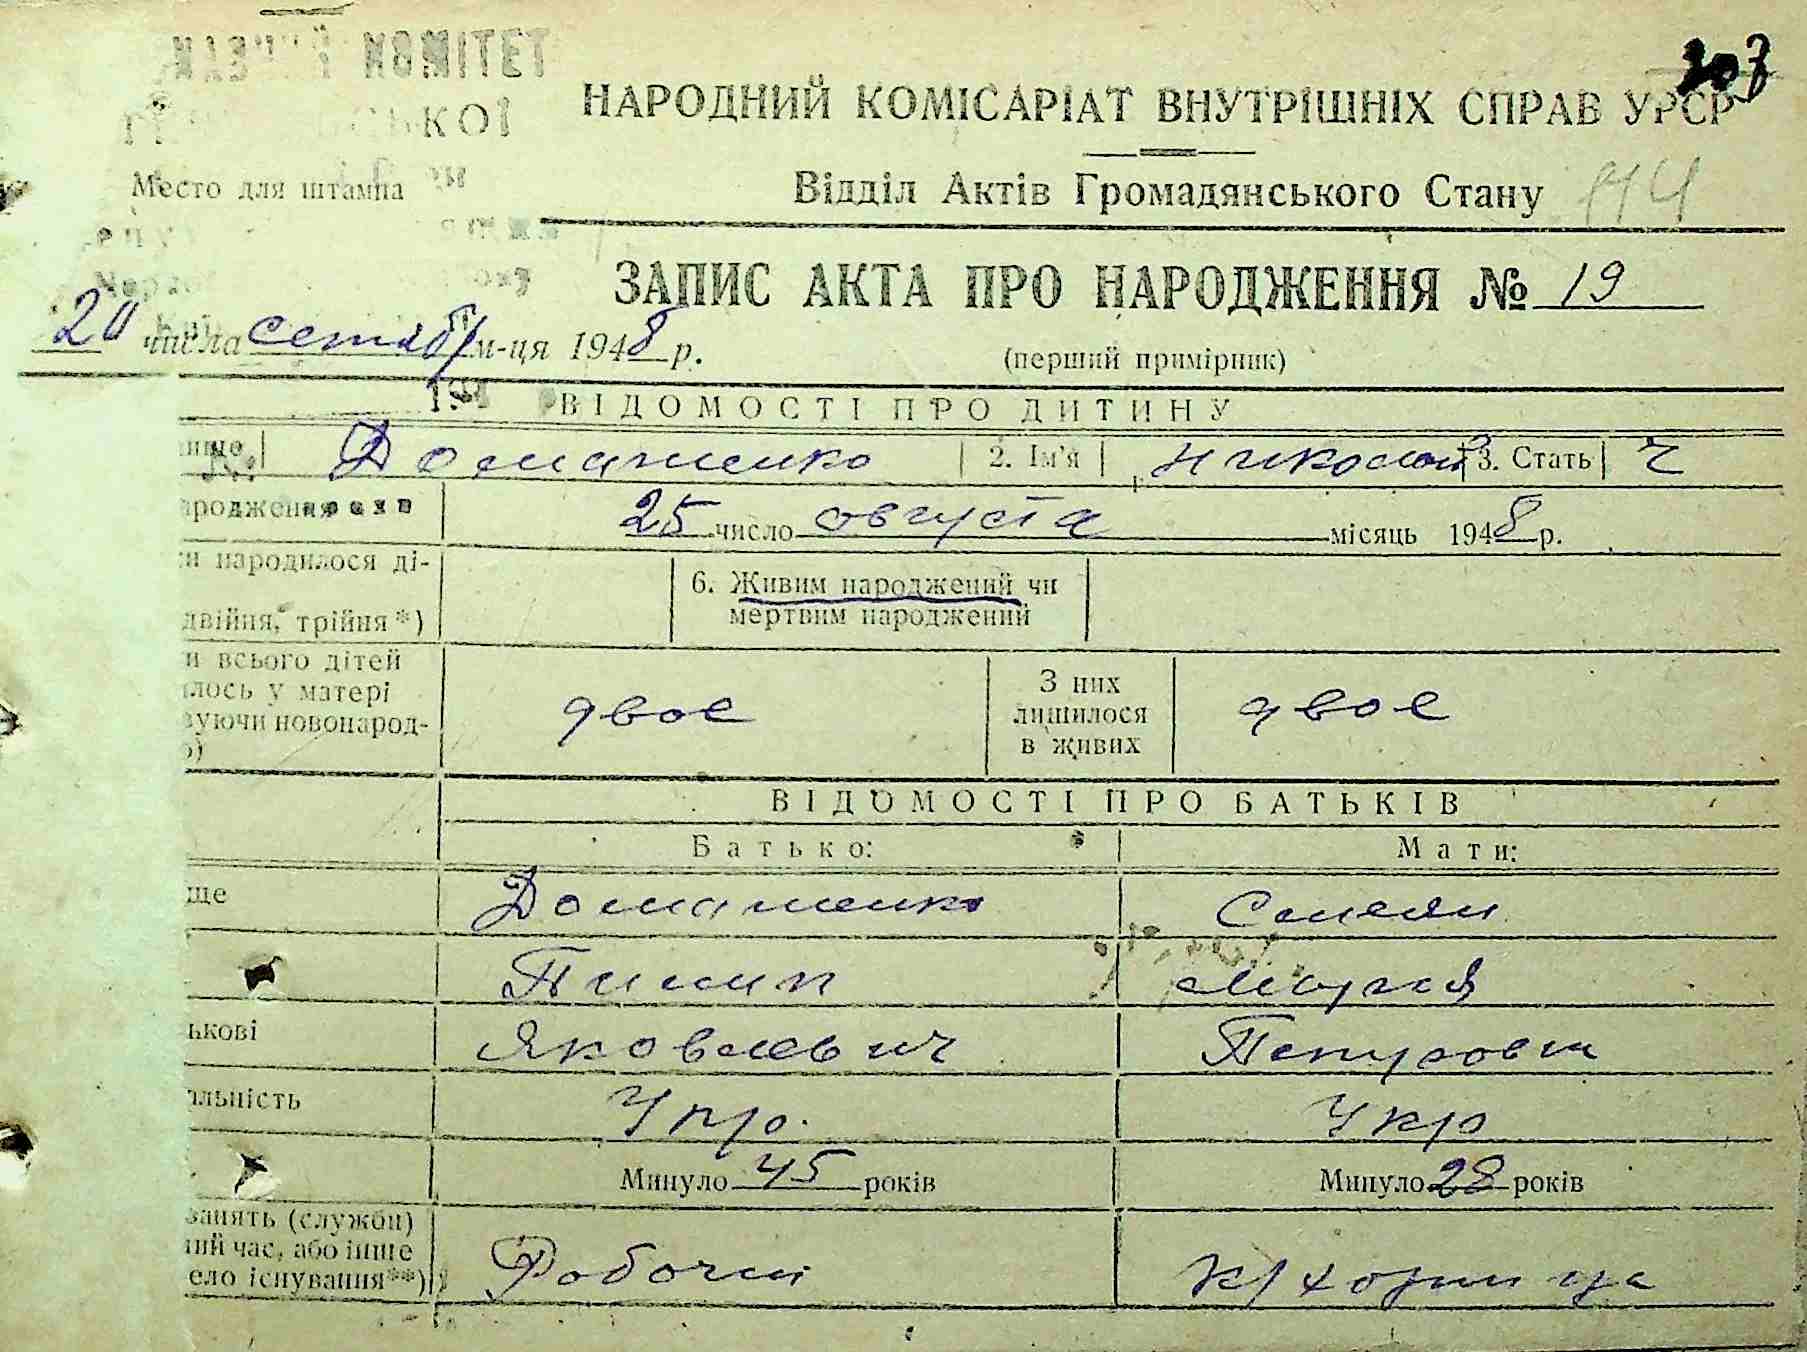 КОМІТЕТ
203
НАРОДНИЙ КОМІСАРІАТ ВНУТРІШНІХ СПРАВ УРСР
Место для штампа
Відділ Актів Громадянського Стану
ЗАПИС АКТА ПРО НАРОДЖЕННЯ № 19
20 числа сетября м-ця 1948 р.
(перший примірник)
ВІДОМОСТІ ПРО ДИТИНУ
ище Доманенко 2. Ім'я Николай 3. Стать Ч
ародження 25 число августа місяць 1948 р.
и народилося ді-
двійня, трійня*)
6. Живим народжений чи
мертвим народжений
и всього дітей
лось у матері
вуючи новонарод-
двое
З них
лишилося
в живих
двое
ВІДОМОСТІ ПРО БАТЬКІВ
Батько: Мати:
ще Доманенко
Пимип Мария
ькові Яковлевич
альність Укр. Укр
Минуло 45 років Минуло 28 років
занять (служби)
ий час, або інше
ело існування**)
Робочий